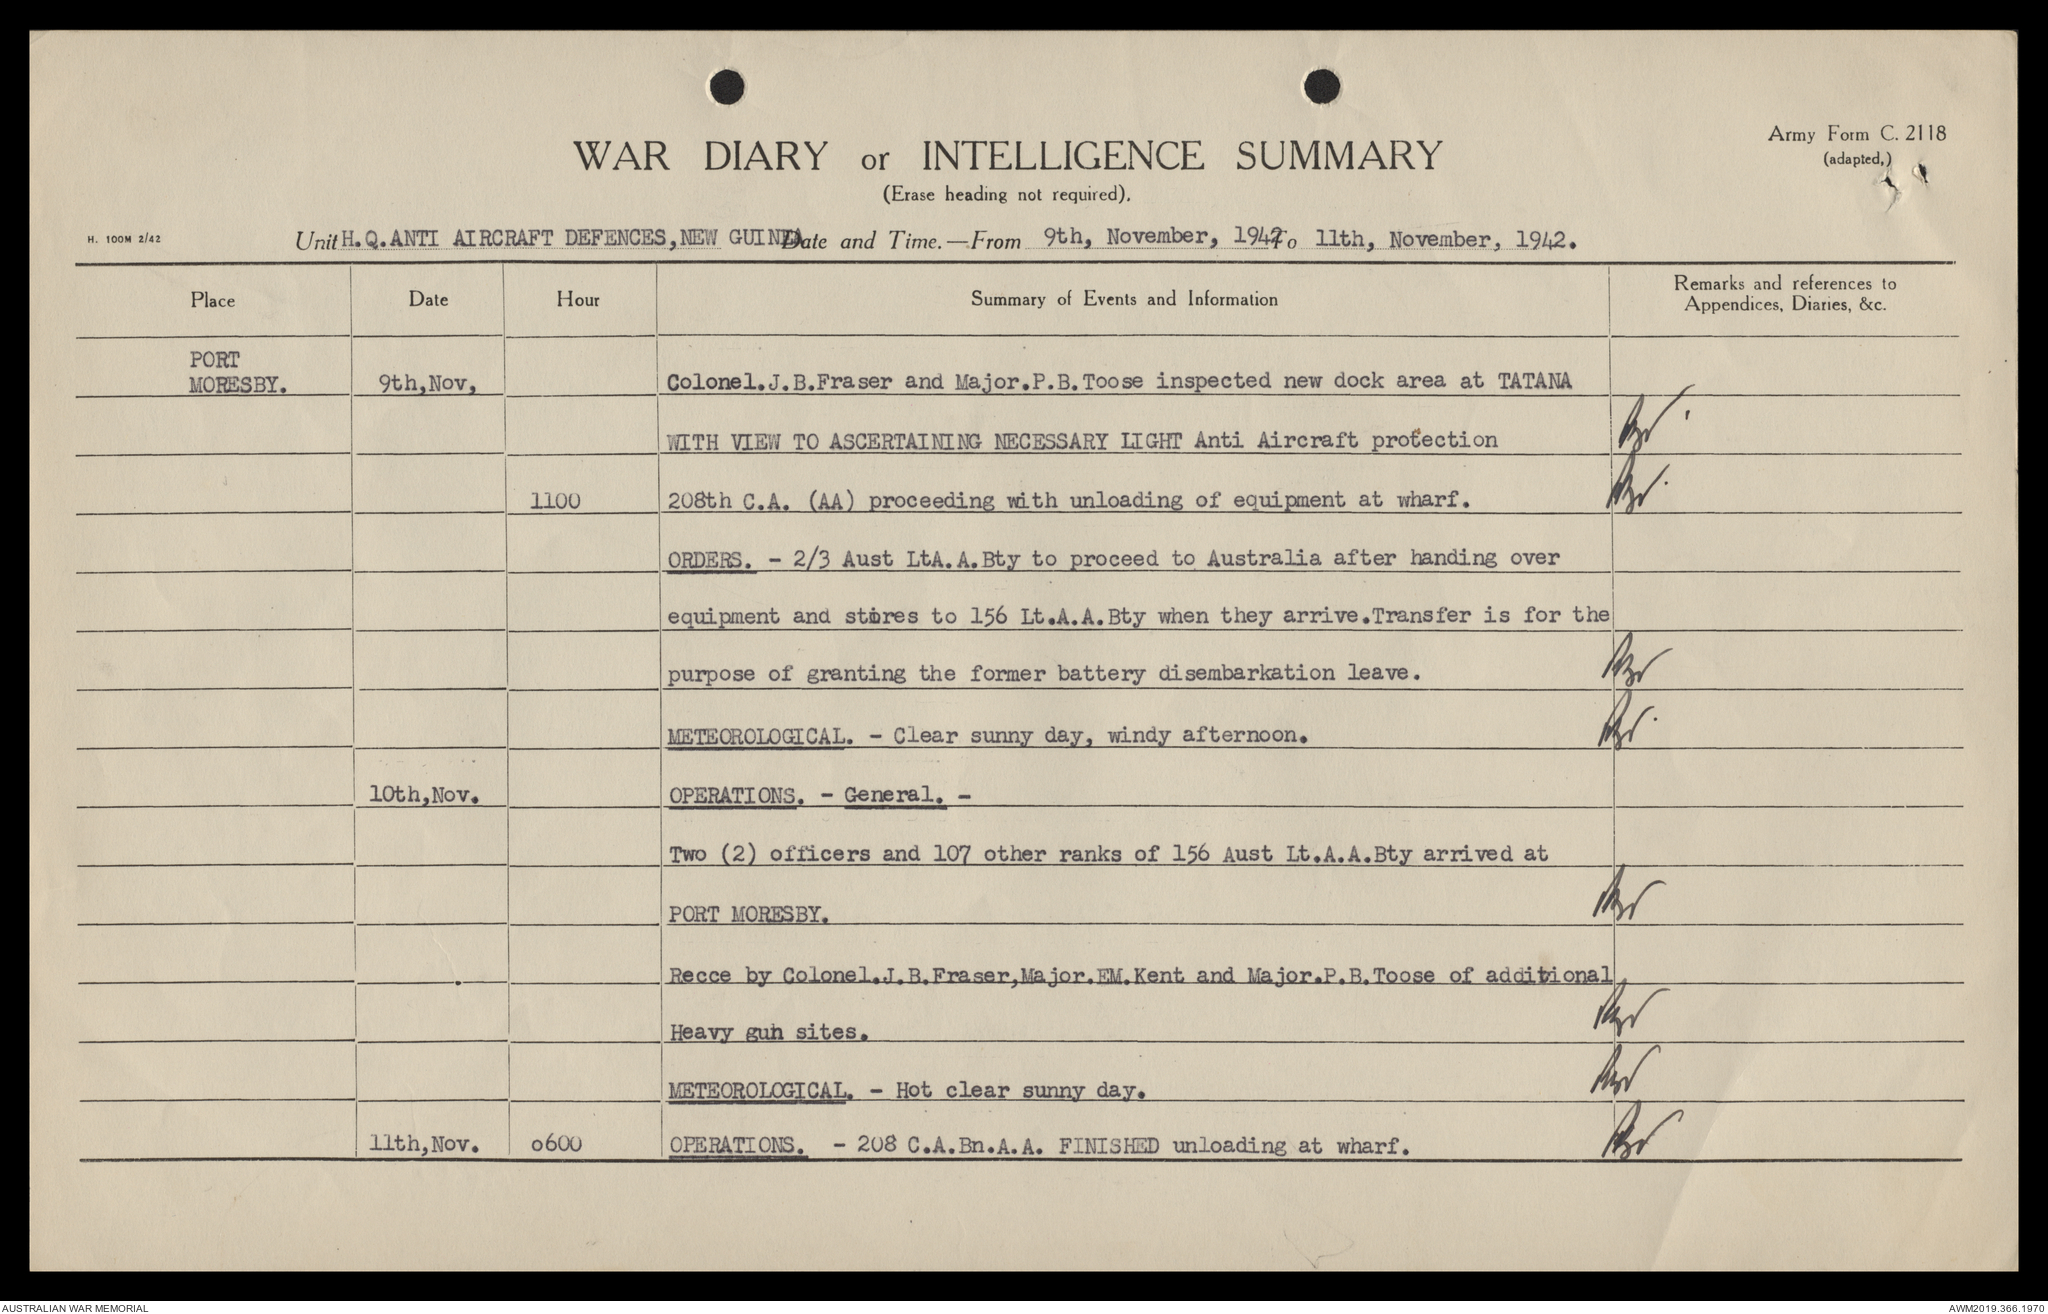 Army Form C. 2118
(adapted,)
WAR DIARY or INTELLIGENCE SUMMARY
(Erase heading not required).
H. 100M 2/42
Unit H.Q.ANTI AIRCRAFT DEFENCES,NEW GUINEA Date and Time.—From 9th, November, 1942 To 11th, November, 1942.
Place Date Hour Summary of Events and Information Remarks and references to
Appendices, Diaries, &c.
PORT
MORESBY. 9th,Nov, Colonel.J.B.Fraser and Major.P.B.Toose inspected new dock area at TATANA
WITH VIEW TO ASCERTAINING NECESSARY LIGHT Anti Aircraft protection
1100 208th C.A. (AA) proceeding with unloading of equipment at wharf.
ORDERS. - 2/3 Aust LtA.A.Bty to proceed to Australia after handing over
equipment and stores to 156 Lt.A.A.Bty when they arrive.Transfer is for the
purpose of granting the former battery disembarkation leave.
METEOROLOGICAL. - Clear sunny day, windy afternoon.
10th,Nov. OPERATIONS. - General. -
Two (2) officers and 107 other ranks of 156 Aust Lt.A.A.Bty arrived at
PORT MORESBY.
Recce by Colonel.J.B.Fraser,Major.EM.Kent and Major.P.B.Toose of additional
Heavy gun sites.
METEOROLOGICAL. - Hot clear sunny day.
11th,Nov. o600 OPERATIONS. - 208 C.A.Bn.A.A. FINISHED unloading at wharf.
AUSTRALIAN WAR MEMORIAL AWM2019.366.1970